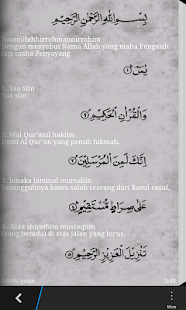 بِسْمِ اللَّهِ الرَّحْمَٰنِ الرَّحِيمِ
Bissmillahhirrohmannirrahim
Dengan menyebut Nama Allah yang maha Pengasih
lagi maha Penyayang
يسٓ ١
Yaa Siin
وَالْقُرْآنِ الْحَكِيمِ ٢
2. Wal Qur'anul hakim
Demi Al Qur'an yang penuh hikmah,
إِنَّكَ لَمِنَ الْمُرْسَلِينَ ٣
3. Innaka laminal mursaliin
Sesungguhnya kamu salah seorang dari Rasul-rasul,
عَلَىٰ صِرَاطٍ مُسْتَقِيمٍ ٤
4. Alaa shirathim mustaqiim
(yang berada) di atas jalan yang lurus,
تَنْزِيلَ الْعَزِيزِ الرَّحِيمِ ٥
yasin
3:45
Back
More